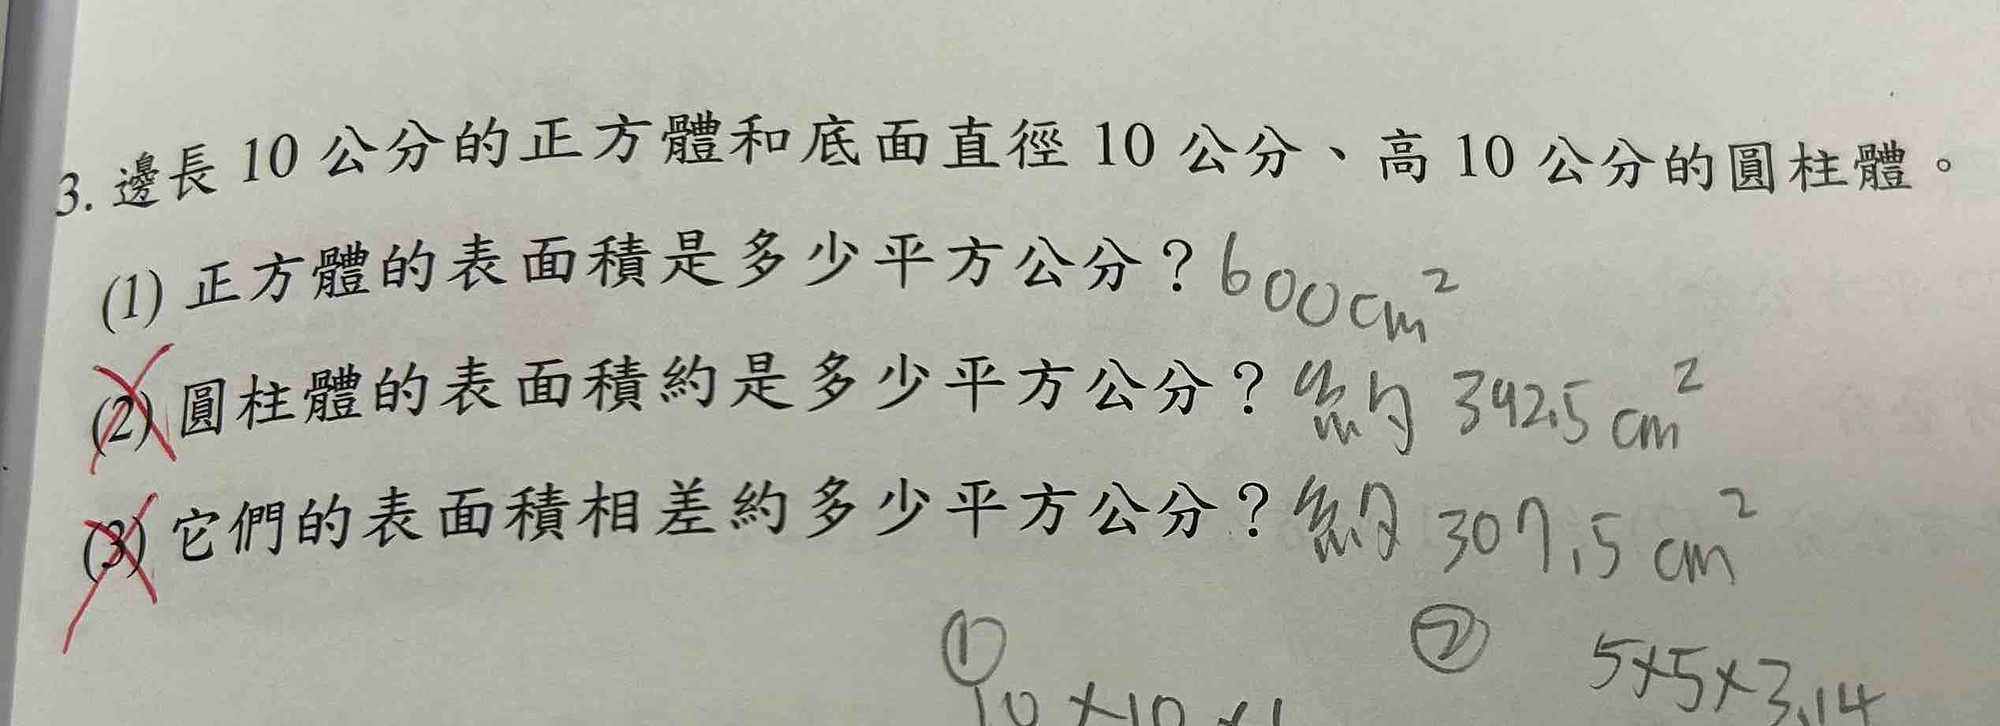 3. 邊長 10 公分的正方體和底面直徑 10 公分、高 10 公分的圓柱體。
(1) 正方體的表面積是多少平方公分？600cm²
(2) 圓柱體的表面積約是多少平方公分？約 392.5 cm²
(3) 它們的表面積相差約多少平方公分？約 307.5 cm²
① ②
10×10× 5×5×3.14